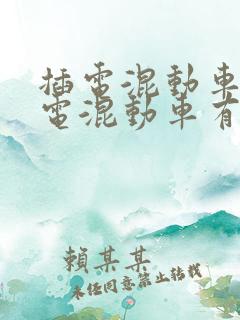 插電混動車
電混動車有
賴某某
未經同意禁止轉載